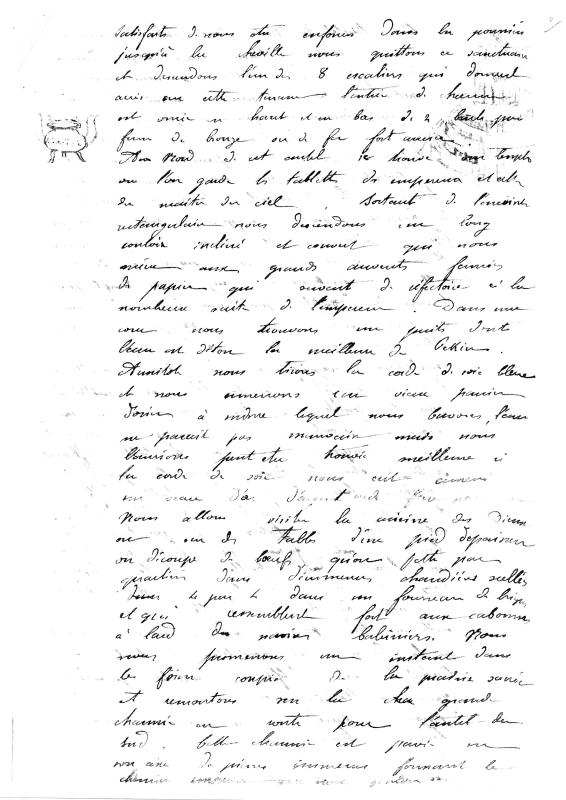 satisfaits de nous être enfoncés dans la poussière
jusqu'à la cheville nous quittons ce sanctuaire
et descendons l'un des 8 escaliers qui donnent
accès sur cette terrasse l'entrée de chacun
est ornée en haut et en bas de 2
de bronze ou de fer fort ancien
Au Nord de cet autel se trouve un temple
où l'on garde les tablettes des empereurs et celle
du maître du ciel. Sortant de l'enceinte
rectangulaire nous descendons un long
couloir incliné et couvert qui nous
mène aux grands auvents fermés
de papier qui servent de réfectoire à la
nombreuse suite de l'empereur. Dans une
cour nous trouvons un puits dont
l'eau est dit on la meilleure de Pekin.
Aussitôt nous tirons la corde de soie bleue
et nous amenons un vieux panier
d'osier à même lequel nous buvons, l'eau
ne parait pas mauvaise mais nous
l'aurions peut être trouvée meilleure si
la corde de soie nous eut amené
un seau d'or
Nous allons visiter la cuisine des Dieux
où sur des tables d'un pied d'épaisseur
on découpe des bœufs qu'on jette par
quartiers dans d'immenses chaudières scellées
4 par 4 dans un fourneau de briques
et qui ressemblent fort aux cabornes
à lard des navires baleiniers. Nous
nous promenons un instant dans
le foin coupé de la prairie sacrée
et remontons sur la grande
chaussée en route pour l'autel du
sud. Cette chaussée est pavée en
son axe de pierres immenses formant le
chemin